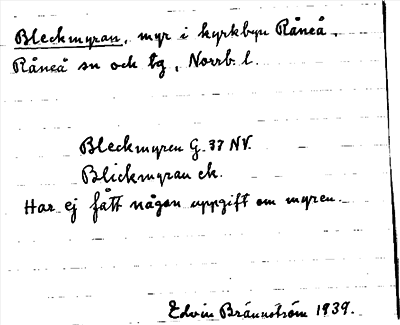 Bleckmyran, myr i kyrkbyn Råneå,
Råneå sn och tg, Norrb. l.
Bleckmyren G. 37 NV.
Blickmyran ek.
Har ej fått någon uppgift om myren.
Edvin Brännström 1939.